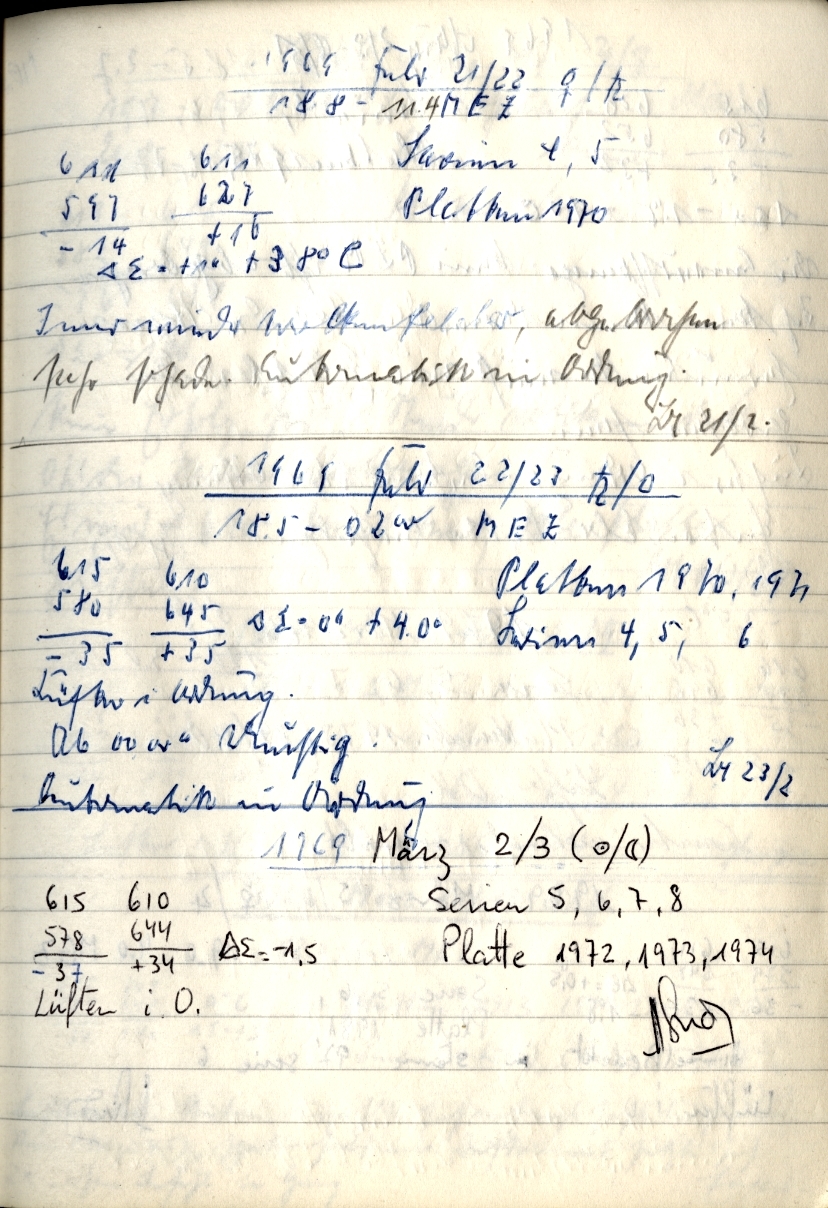 1969 Febr 21/22 ♀/♄
18.8 - 11.4 MEZ
611 611 Serien 4, 5
597 627 Platten 1970
-14 +16
ΔΣ = +1" +3.8° C
Immer wieder Wolkenfelder, abgebrochen
sehr schade. Automatik in Ordnung.
21/2.
1969 Febr 22/23 ♄/☉
18.5 - 02 MEZ
615 610 Platten 1970, 1971
580 645 ΔΣ = 0" +4.0° Serien 4, 5, 6
-35 +35
Lüfter i Ordnung.
Ab 00 dunstig.
23/2
Automatik in Ordnung
1969 März 2/3 (☉/☾)
615 610 Serien 5, 6, 7, 8
578 644 ΔΣ = -1,5 Platte 1972, 1973, 1974
-37 +34
Lüften i. O.